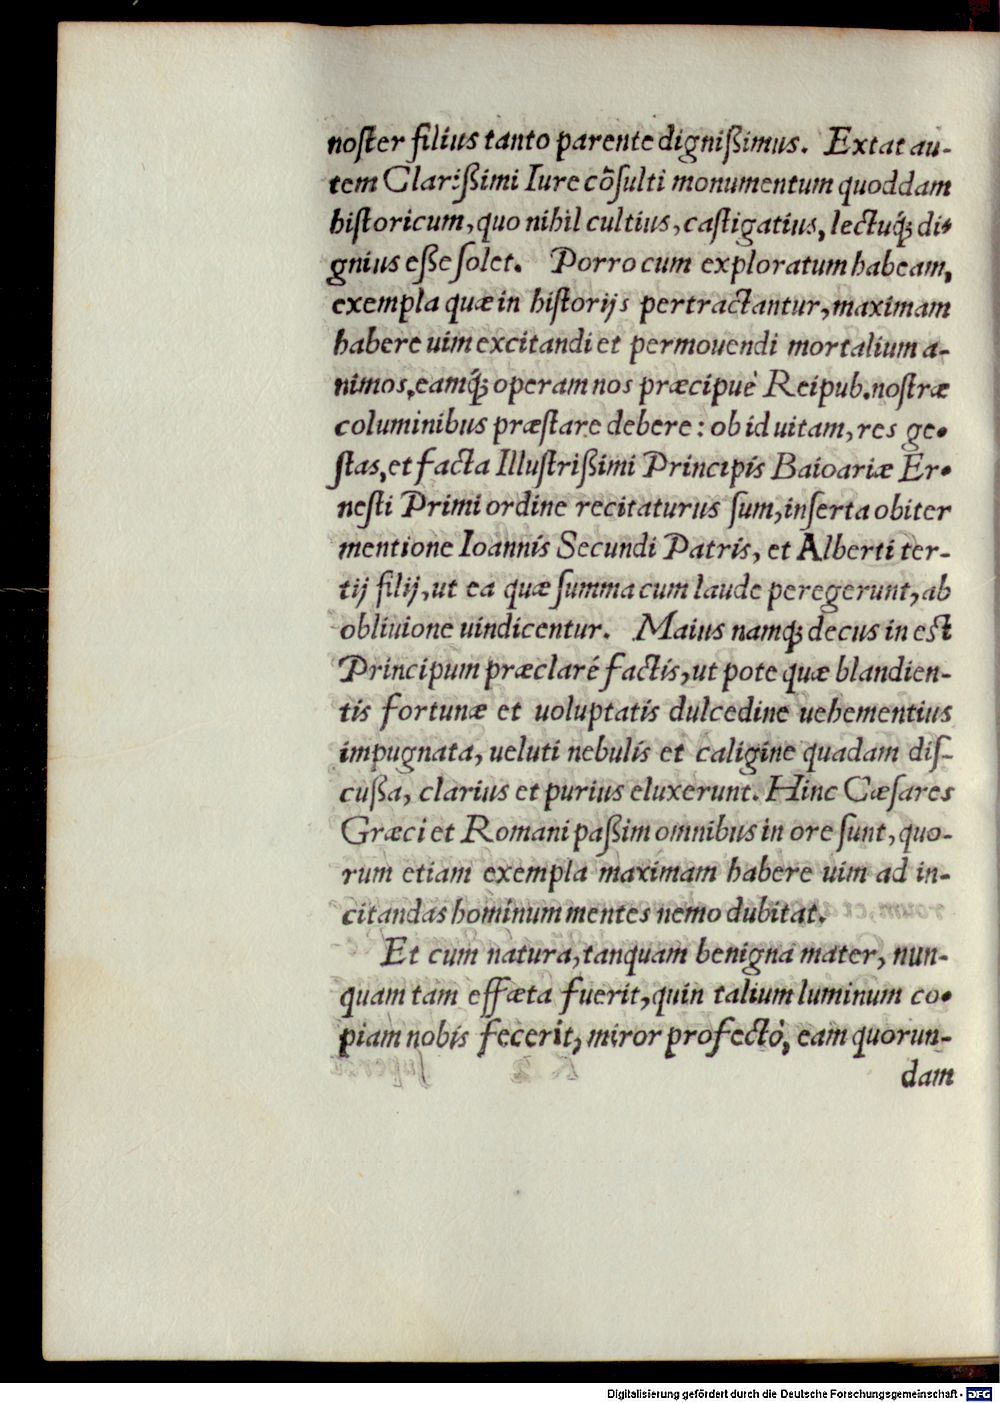 noſter filius tanto parente digniſſimus. Extat au-
tem Clariſſimi Iure cõſulti monumentum quoddam
hiſtoricum, quo nihil cultius, caſtigatius, lectuq́; di-
gnius eſſe ſolet. Porro cum exploratum habeam,
exempla quæ in hiſtorijs pertractantur, maximam
habere uim excitandi et permouendi mortalium a-
nimos, eamq́; operam nos præcipuè Reipub. noſtræ
columinibus præſtare debere: ob id uitam, res ge-
ſtas, et facta Illuſtriſſimi Principis Baioariæ Er-
neſti Primi ordine recitaturus ſum, inſerta obiter
mentione Ioannis Secundi Patris, et Alberti ter-
tij filij, ut ea quæ ſumma cum laude peregerunt, ab
obliuione uindicentur. Maius namq́; decus in est
Principum præclaré factis, ut pote quæ blandien-
tis fortunæ et uoluptatis dulcedine uehementius
impugnata, ueluti nebulis et caligine quadam diſ-
cuſſa, clarius et purius eluxerunt. Hinc Cæſares
Græci et Romani paſſim omnibus in ore ſunt, quo-
rum etiam exempla maximam habere uim ad in-
citandas hominum mentes nemo dubitat.
Et cum natura, tanquam benigna mater, nun-
quam tam effæta fuerit, quin talium luminum co-
piam nobis fecerit, miror profectò, eam quorun-
dam
Digitalisierung gefördert durch die Deutsche Forschungsgemeinschaft - DFG